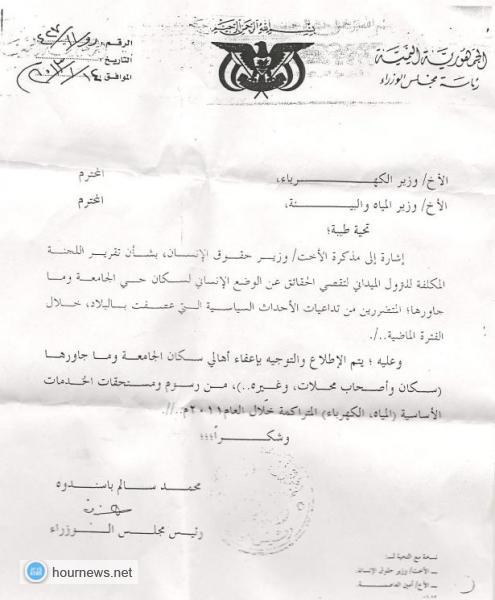 بسم الله الرحمن الرحيم
الجمهورية اليمنية
رئاسة مجلس الوزراء
الرقم
التاريخ
الموافق
الأخ/ وزير الكهـــرباء، المحترم
الأخ/ وزير المياه والبيـــئة، المحترم
تحية طيبة؛
إشارة إلى مذكرة الأخت/ وزيـر حقـوق الإنـسان، بشـأن تقريـر اللجنـة
المكلفة للنزول الميداني لتقصي الحقائق عن الوضع الإنساني لسكان حـي الجامعة وما
جاورها؛ المتضررين من تداعيات الأحداث السياسية التي عصفت بـالبلاد، خـلال
الفترة الماضية../.
وعليه ؛ يتم الإطلاع والتوجيه بإعفاء أهالي سكان الجامعة وما جاورها
(سكان وأصحاب محلات، وغيره..)، مـن رسوم ومستحقات الخدمات
الأساسية (المياه، الكهرباء) المتراكمة خلال العام ٢٠١١م../.
وشكـــراً؛؛؛
محمد سالم باسندوه
رئيس مجلس الـوزراء
نسخة مع التحية لـ:
ـ الأخت/ وزير حقوق الإنسان.
ـ الأخ/ أمين العاصمة.
hournews.net